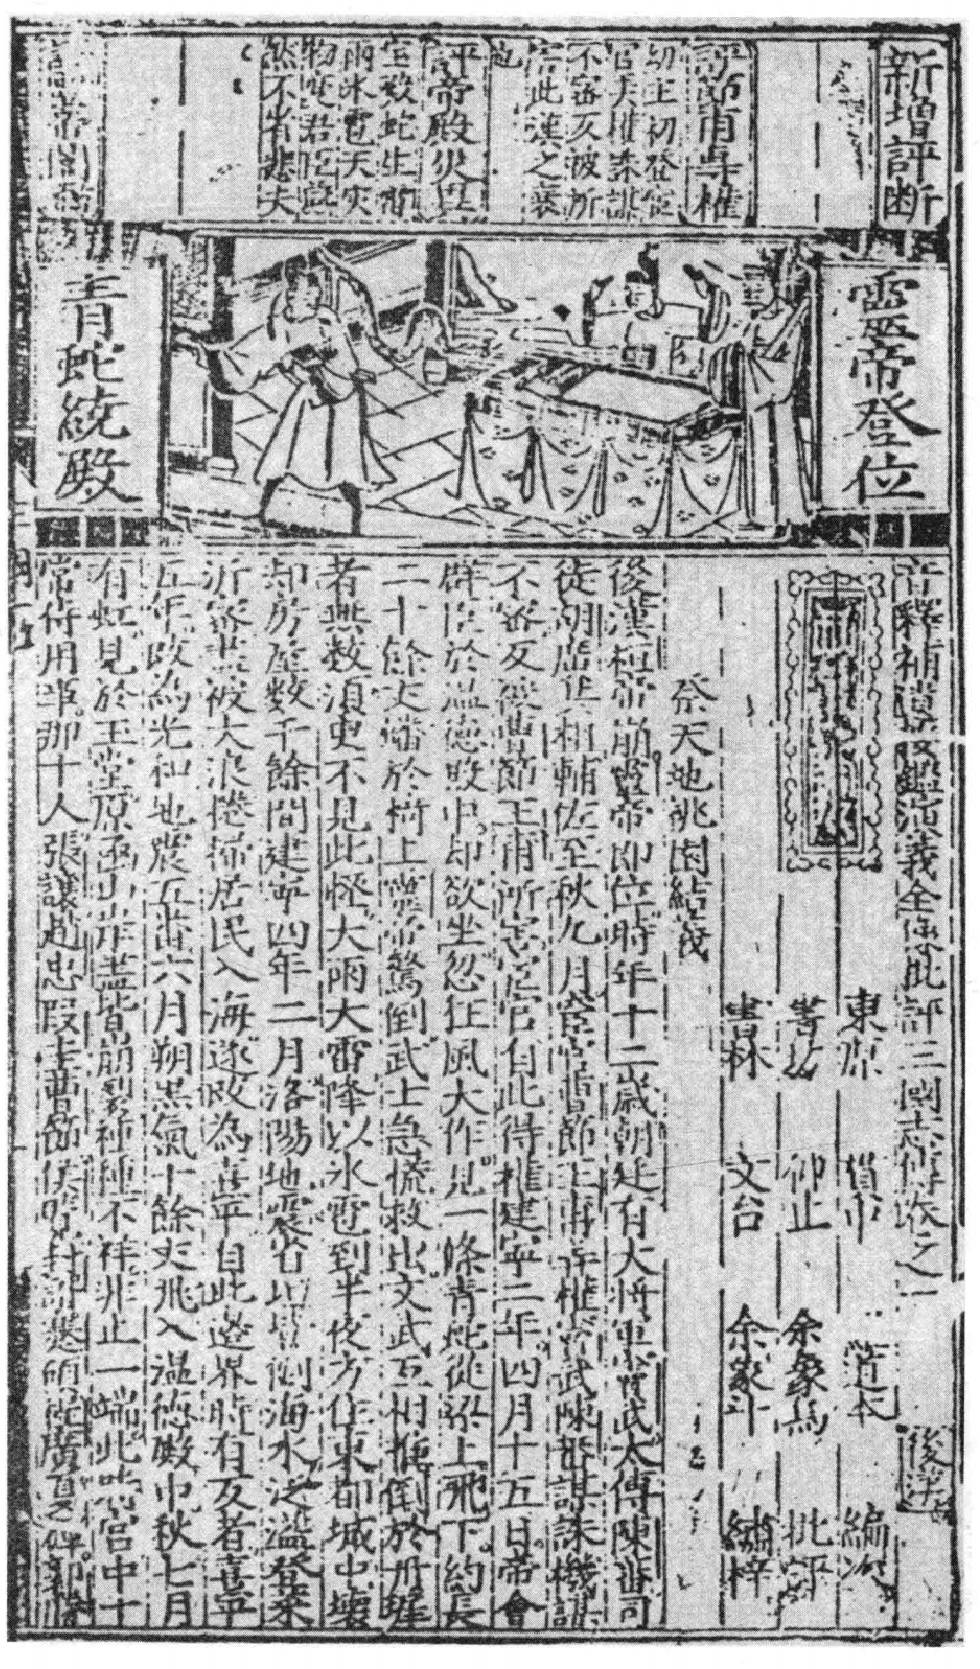 新增評断
評節甫專權
幼主初登宦
官夫權朱謀
不密反被所
害此漢之衰
也
評帝殿災異
室致蛇生前
雨水雹天灾
物变君臣
然不省悲夫
靈帝登位
青蛇繞殿
音釋補遺按鑑演義全像批評三國志傳卷之一
後漢
東原 貫中 道本 編次
書坊 仰止 余象烏 批評
書林 文台 余象斗 繡梓
祭天地桃園結義
後漢桓帝崩靈帝即位時年十二歲朝廷有大將軍竇武太傅陳蕃司
徒胡廣共相輔佐至秋九月宦官曹節王甫弄權竇武陳蕃謀誅機謀
不密反被曹節王甫所害宦官自此得權建寧二年四月十五日帝會
群臣於温德殿中却欲坐忽狂風大作見一條青蛇從梁上飛下約長
二十餘丈蟠於椅上靈帝驚倒武士急慌救出文武互相推倒於丹墀
者無数須臾不見此怪大雨大雷降以氷雹到半夜方住東都城中壞
却房屋数千餘間建寧四年二月洛陽地震省垣皆倒海水泛溢登萊
沂密盡被大浪捲掃居民入海遂改為熹平自此邊界時有反者熹平
五年改為光和地震五番六月朔黑氣十餘丈飛入温德殿中秋七月
有虹見於玉堂原函山岸盡皆崩裂種種不祥非止一端此時宮中十
常侍用事那十人張讓趙忠段圭曹節侯覽封諝蹇碩